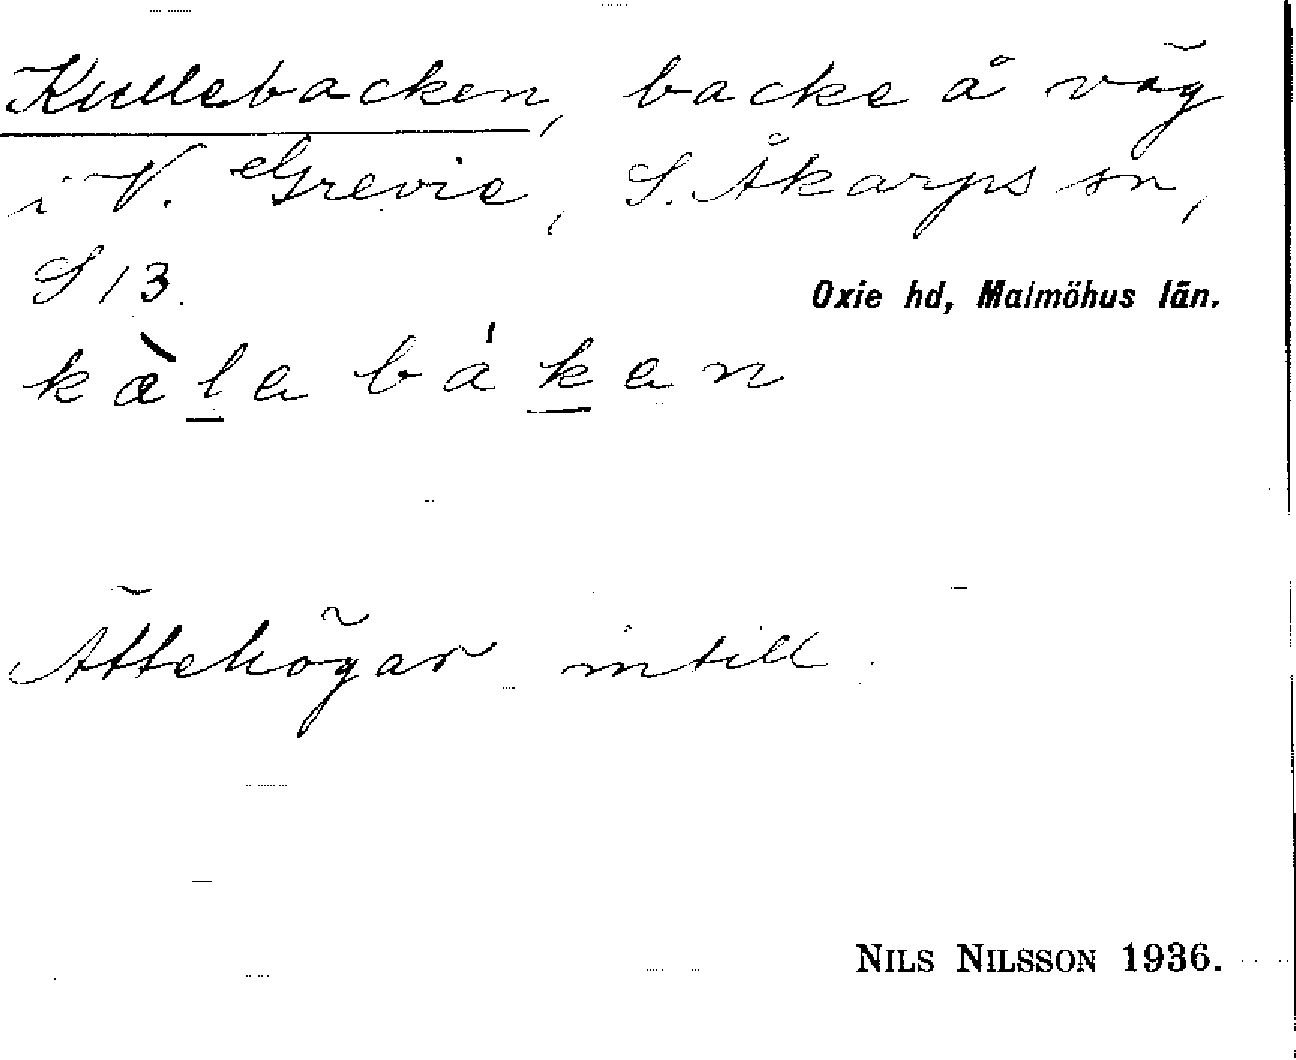 Kullebacken, backe å väg
i V. Grevie, S. Åkarps sn,
S 13.
Oxie hd, Malmöhus län.
kæ̀la bákan
Ättehögar intill.
NILS NILSSON 1936.